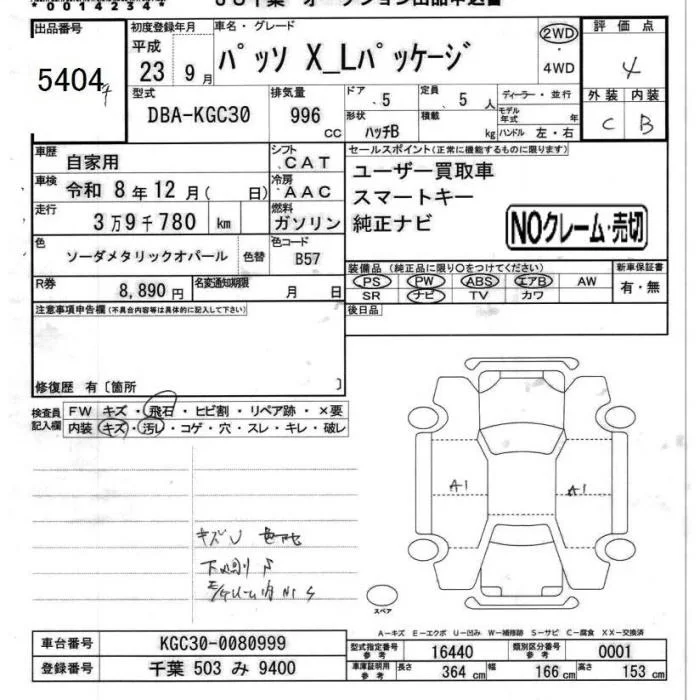 *00142344*
出品番号
5404
初度登録年月
平成
23 9月
車名・グレード
パッソ X_Lパッケージ
2WD
・
4WD
評価点
4
外装 内装
C B
型式
DBA-KGC30
排気量
996
cc
ドア
. 5
定員
. 5 人
ディーラー・並行
モデル年式 年
形状
ハッチB
積載
kg
ハンドル 左・右
車歴
自家用
シフト
.CAT
車検
令和 8年12月( 日)
冷房
.AAC
走行
3万9千780 km
燃料
ガソリン
色
ソーダメタリックオパール
色替
色コード
B57
R券
8,890円
名変通知期限
月 日
セールスポイント(正常に機能するものに限ります)
ユーザー買取車
スマートキー
純正ナビ
NOクレーム・売切
装備品(純正品に限り○をつけてください)
PS PW ABS エアB AW
SR ナビ TV カワ
新車保証書
有・無
注意事項申告欄(不具合内容等は具体的に記入して下さい)
後日品
修復歴 有〔箇所 〕
検査員記入欄
FW キズ・飛石・ヒビ割・リペア跡・×要
内装 キズ・汚レ・コゲ・穴・スレ・キレ・破レ
A1
A1
キズU
スペア
A-キズ E-エクボ U-凹み W-補修跡 S-サビ C-腐食 XX-交換済
車台番号
KGC30-0080999
登録番号
千葉 503 み 9400
型式指定番号
参考
16440
類別区分番号
参考
0001
車庫証明用
参考
長さ
364 cm
幅
166 cm
高さ
153 cm